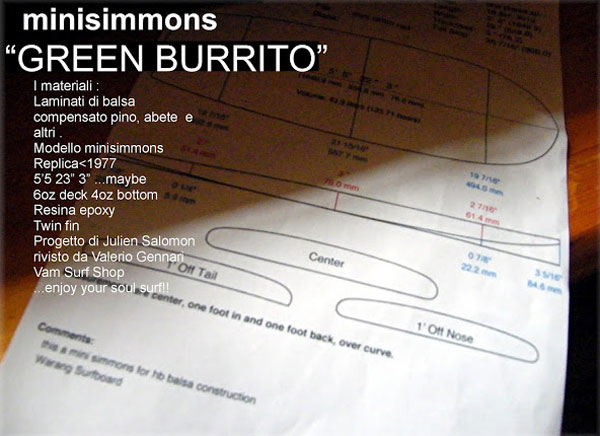 minisimmons
“GREEN BURRITO”
I materiali :
Laminati di balsa
compensato pino, abete e
altri .
Modello minisimmons
Replica<1977
5'5 23” 3” ...maybe
6oz deck 4oz bottom
Resina epoxy
Twin fin
Progetto di Julien Salomon
rivisto da Valerio Gennari
Vam Surf Shop
...enjoy your soul surf!!
21 15/16"
557.7 mm
19 7/16"
494.0 mm
3"
76.0 mm
2 7/16"
61.4 mm
0 1/4"
0 7/8"
22.2 mm
3 5/16"
84.6 mm
Center
1' Off Tail
1' Off Nose
center, one foot in and one foot back, over curve.
Comments:
this a mini simmons for hb balsa construction
Warang Surfboard